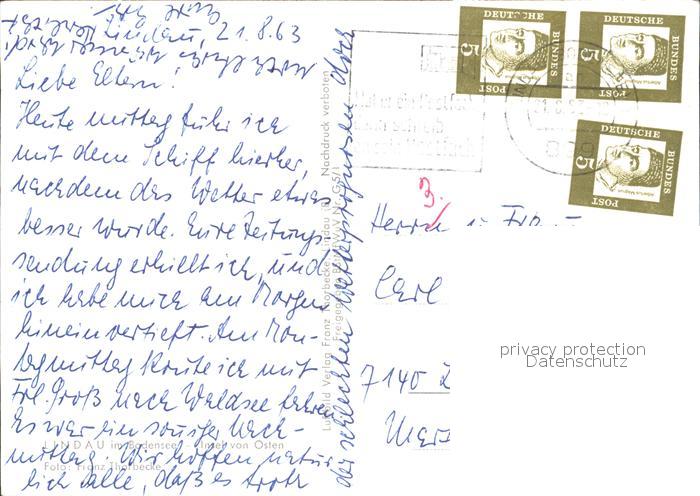 Lindau, 21.8.63
Liebe Eltern!
Heute mittag fuhr ich
mit dem Schiff hierher,
nachdem das Wetter etwas
besser wurde. Eure Zeitungs-
sendung erhielt ich, und
ich habe mich am Morgen
hinein vertieft. Am Mon-
tagmittag konnte ich mit
Frl. Groß nach Waldsee fahren
Es war ein sonniger Nach-
mittag. Wir hoffen natür-
lich alle, daß es trotz
der schlechten Wetterprognosen doch
LINDAU im Bodensee - Insel von Osten
Foto: Franz Thorbecke
Luftbild Verlag Franz Thorbecke Lindau (B) Nachdruck verboten
DEUTSCHE
BUNDES
POST
5
Albertus Magnus
DEUTSCHE
BUNDES
POST
5
Albertus Magnus
DEUTSCHE
BUNDES
POST
5
Albertus Magnus
3.
Herrn u. Frau
Carl
7140
privacy protection
Datenschutz